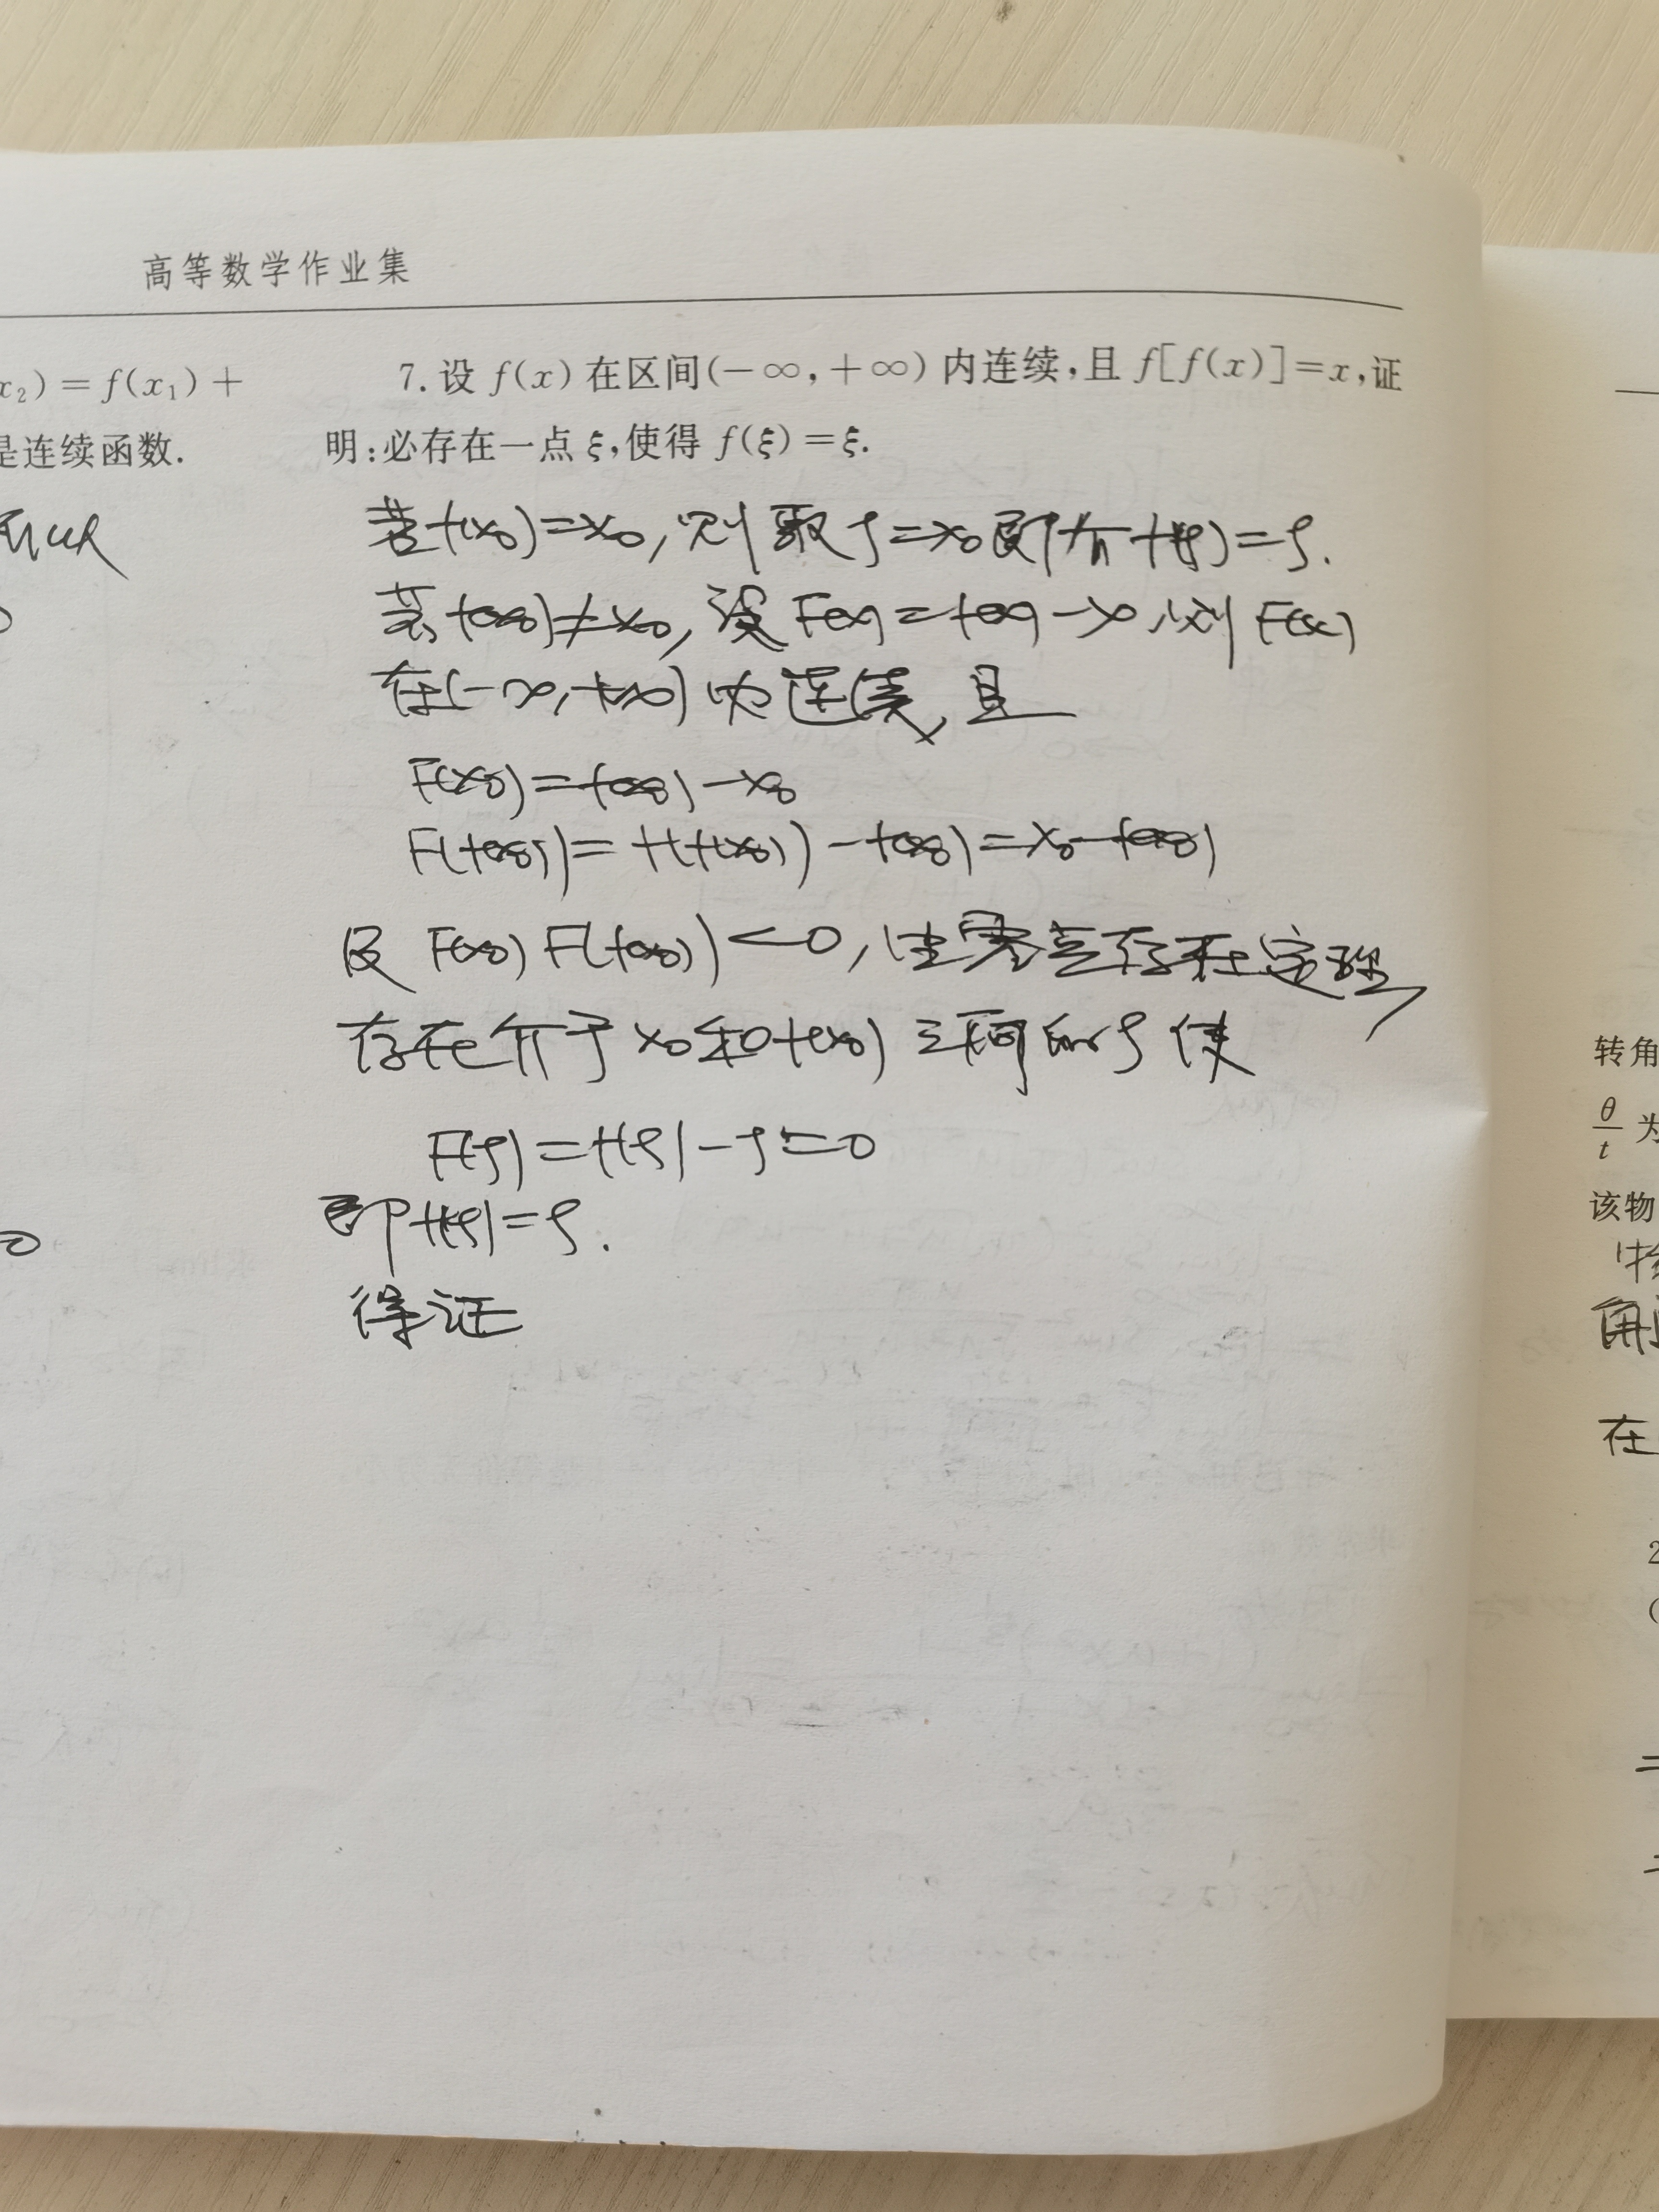 高等数学作业集
x₂)=f(x₁)+
是连续函数.
7. 设 f(x) 在区间(-∞,+∞) 内连续,且 f[f(x)]=x,证
明:必存在一点 ξ,使得 f(ξ)=ξ.
若f(x₀)=x₀,则取ξ=x₀即有f(ξ)=ξ.
若f(x₀)≠x₀,设F(x)=f(x)-x,则F(x)
在(-∞,+∞)内连续,且
F(x₀)=f(x₀)-x₀
F(f(x₀))=f(f(x₀))-f(x₀)=x₀-f(x₀)
及 F(x₀)F(f(x₀))<0,由零点存在定理,
存在介于x₀和f(x₀)之间的ξ使
F(ξ)=f(ξ)-ξ=0
即f(ξ)=ξ.
得证
转角
θ/t 为
该物
角
在
2
(